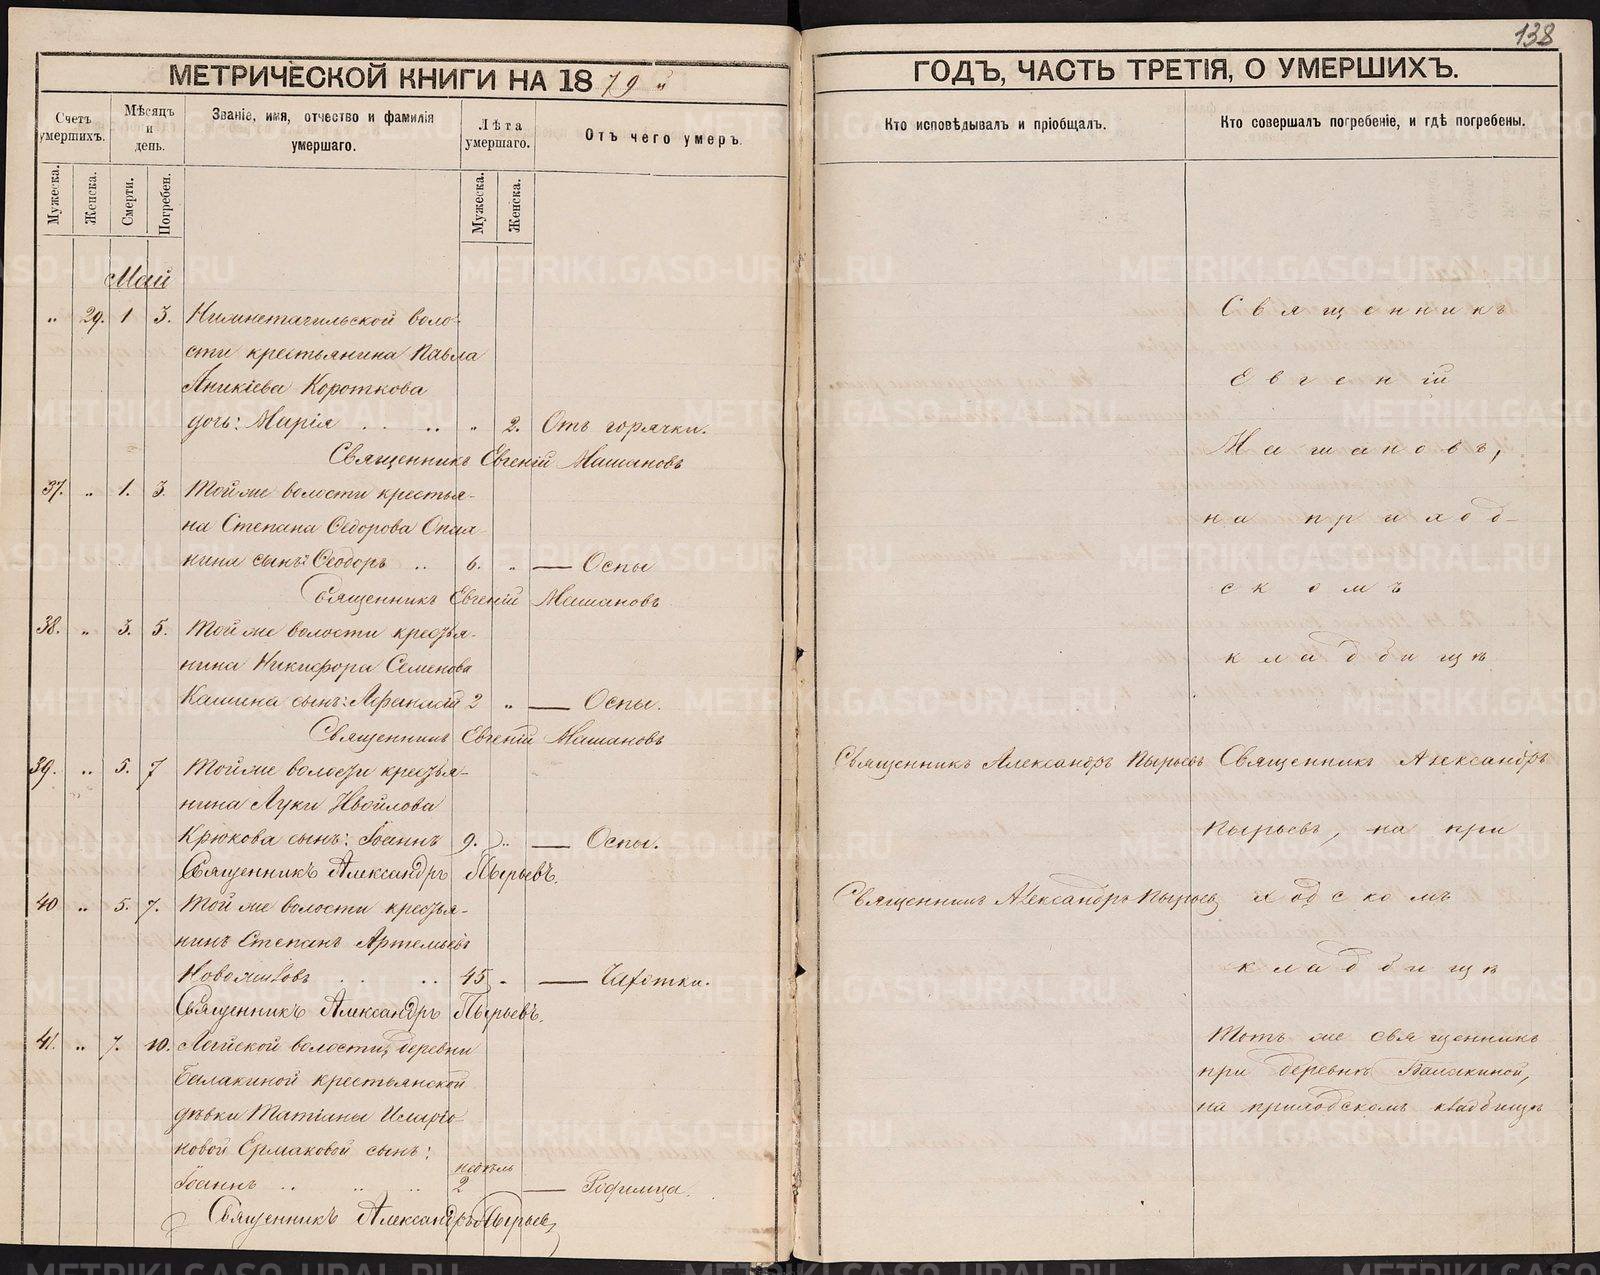 138
МЕТРИЧЕСКОЙ КНИГИ НА 1879 й
Счетъ умершихъ.
Мѣсяцъ и день.
Званіе, имя, отчество и фамилія умершаго.
Лѣта умершаго.
Отъ чего умеръ.
Мужеска.
Женска.
Смерти.
Погребен.
Мужеска.
Женска.
Май
" 29. 1 3. Нижнетагильской воло-
сти крестьянина Павла
Аникіева Короткова
дочь: Марія . . .. " 2. Отъ горячки.
Священникъ Евгеній Машановъ
37. " 1. 3. Той же волости крестья-
на Степана Ѳедорова
сынъ: Ѳеодоръ .. 6. " — Оспы
Священникъ Евгеній Машановъ
38. " 3. 5. Той же волости крестья-
нина Никифора Семенова
Кашина сынъ: 2 " — Оспы.
Священникъ Евгеній Машановъ
39. " 5. 7 Той же волости крестья-
нина Луки
Крюкова сынъ: Іоаннъ 9. " — Оспы.
Священникъ Александръ Пырьевъ.
40 " 5. 7. Той же волости крестья-
нинъ Степанъ Артемьевъ
. . .. 45 " — Чахотки.
Священникъ Александръ Пырьевъ.
41. " 7. 10. Лайской волости, деревни
Балакиной крестьянской
дѣвки Татіаны Иларіо-
новой Ермаковой сынъ:
недѣль
Іоаннъ .. .. .. 2 — Родимца.
Священникъ Александръ Пырьевъ
ГОДЪ, ЧАСТЬ ТРЕТІЯ, О УМЕРШИХЪ.
Кто исповѣдывалъ и пріобщалъ.
Кто совершалъ погребеніе, и гдѣ погребены.
Священникъ
Евгеній
Машановъ,
на приход-
скомъ
кладбищѣ
Священникъ Александръ Пырьевъ Священникъ Александръ
Пырьевъ, на при
Священникъ Александръ Пырьевъ ходскомъ
кладбищѣ
Тотъ же священникъ
при деревнѣ Балакиной,
на приходскомъ кладбищѣ
METRIKI.GASO-URAL.RU